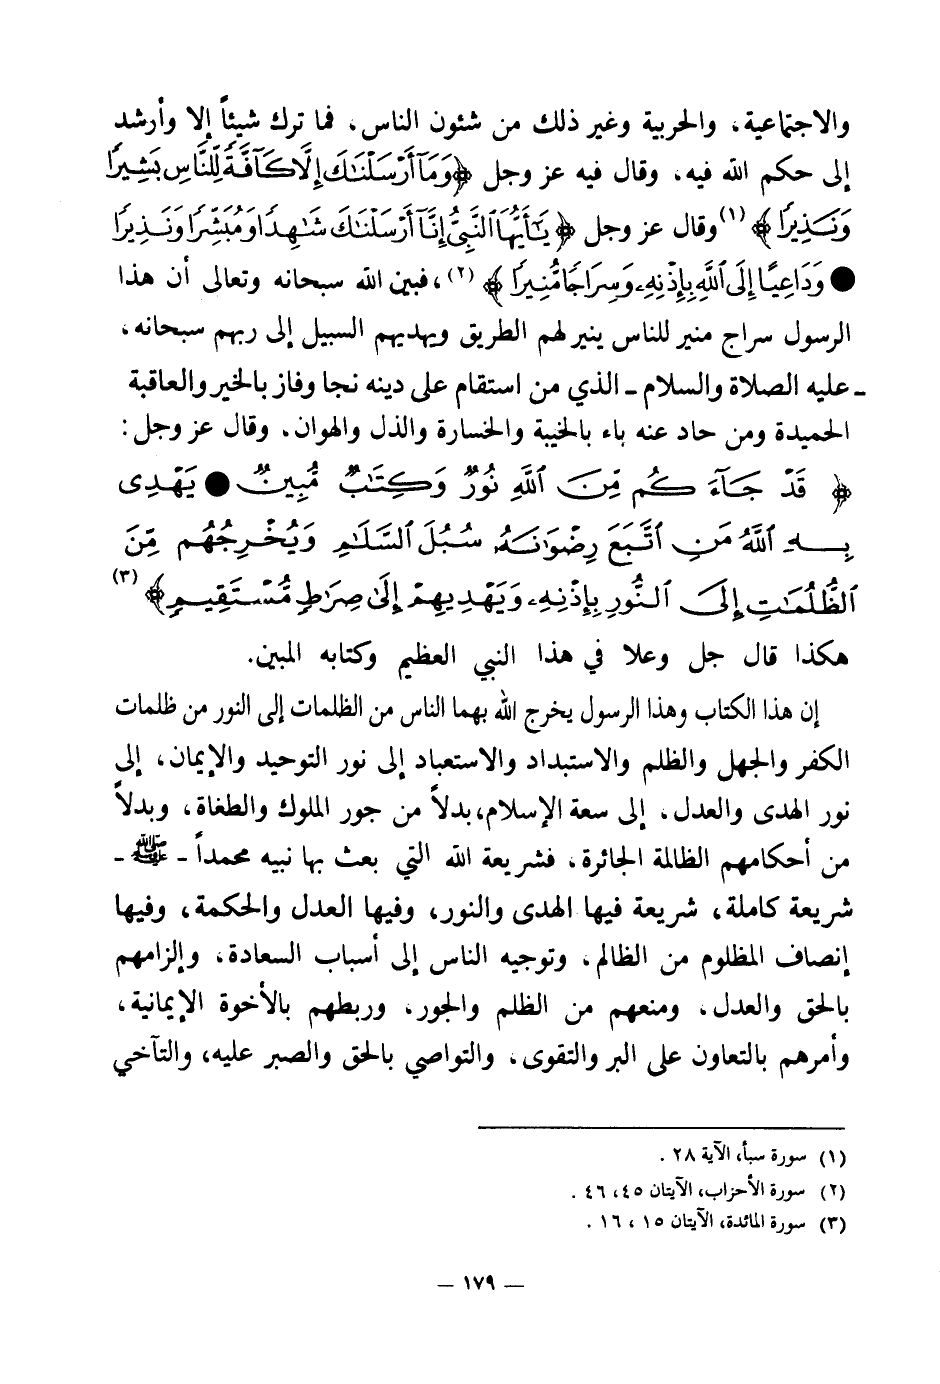 والاجتماعية، والحربية وغير ذلك من شئون الناس، فما ترك شيئاً إلا وأرشد
إلى حكم الله فيه، وقال فيه عز وجل ﴿وَمَآ أَرۡسَلۡنَٰكَ إِلَّا كَآفَّةٗ لِّلنَّاسِ بَشِيرٗا
وَنَذِيرٗا﴾ (١) وقال عز وجل ﴿يَٰٓأَيُّهَا ٱلنَّبِيُّ إِنَّآ أَرۡسَلۡنَٰكَ شَٰهِدٗا وَمُبَشِّرٗا وَنَذِيرٗا
● وَدَاعِيًا إِلَى ٱللَّهِ بِإِذۡنِهِۦ وَسِرَاجٗا مُّنِيرٗا﴾ (٢)، فبين الله سبحانه وتعالى أن هذا
الرسول سراج منير للناس ينير لهم الطريق ويهديهم السبيل إلى ربهم سبحانه،
ـ عليه الصلاة والسلام ـ الذي من استقام على دينه نجا وفاز بالخير والعاقبة
الحميدة ومن حاد عنه باء بالخيبة والخسارة والذل والهوان. وقال عز وجل:
﴿قَدۡ جَآءَكُم مِّنَ ٱللَّهِ نُورٞ وَكِتَٰبٞ مُّبِينٞ ● يَهۡدِي
بِهِ ٱللَّهُ مَنِ ٱتَّبَعَ رِضۡوَٰنَهُۥ سُبُلَ ٱلسَّلَٰمِ وَيُخۡرِجُهُم مِّنَ
ٱلظُّلُمَٰتِ إِلَى ٱلنُّورِ بِإِذۡنِهِۦ وَيَهۡدِيهِمۡ إِلَىٰ صِرَٰطٖ مُّسۡتَقِيمٖ﴾ (٣)
هكذا قال جل وعلا في هذا النبي العظيم وكتابه المبين.
إن هذا الكتاب وهذا الرسول يخرج الله بهما الناس من الظلمات إلى النور من ظلمات
الكفر والجهل والظلم والاستبداد والاستعباد إلى نور التوحيد والإيمان، إلى
نور الهدى والعدل، إلى سعة الإسلام، بدلاً من جور الملوك والطغاة، وبدلاً
من أحكامهم الظالمة الجائرة، فشريعة الله التي بعث بها نبيه محمداً - ﷺ -
شريعة كاملة، شريعة فيها الهدى والنور، وفيها العدل والحكمة، وفيها
إنصاف المظلوم من الظالم، وتوجيه الناس إلى أسباب السعادة، وإلزامهم
بالحق والعدل، ومنعهم من الظلم والجور، وربطهم بالأخوة الإيمانية،
وأمرهم بالتعاون على البر والتقوى، والتواصي بالحق والصبر عليه، والتآخي
(١) سورة سبأ، الآية ٢٨ .
(٢) سورة الأحزاب، الآيتان ٤٥، ٤٦ .
(٣) سورة المائدة، الآيتان ١٥ ، ١٦ .
— ١٧٩ —